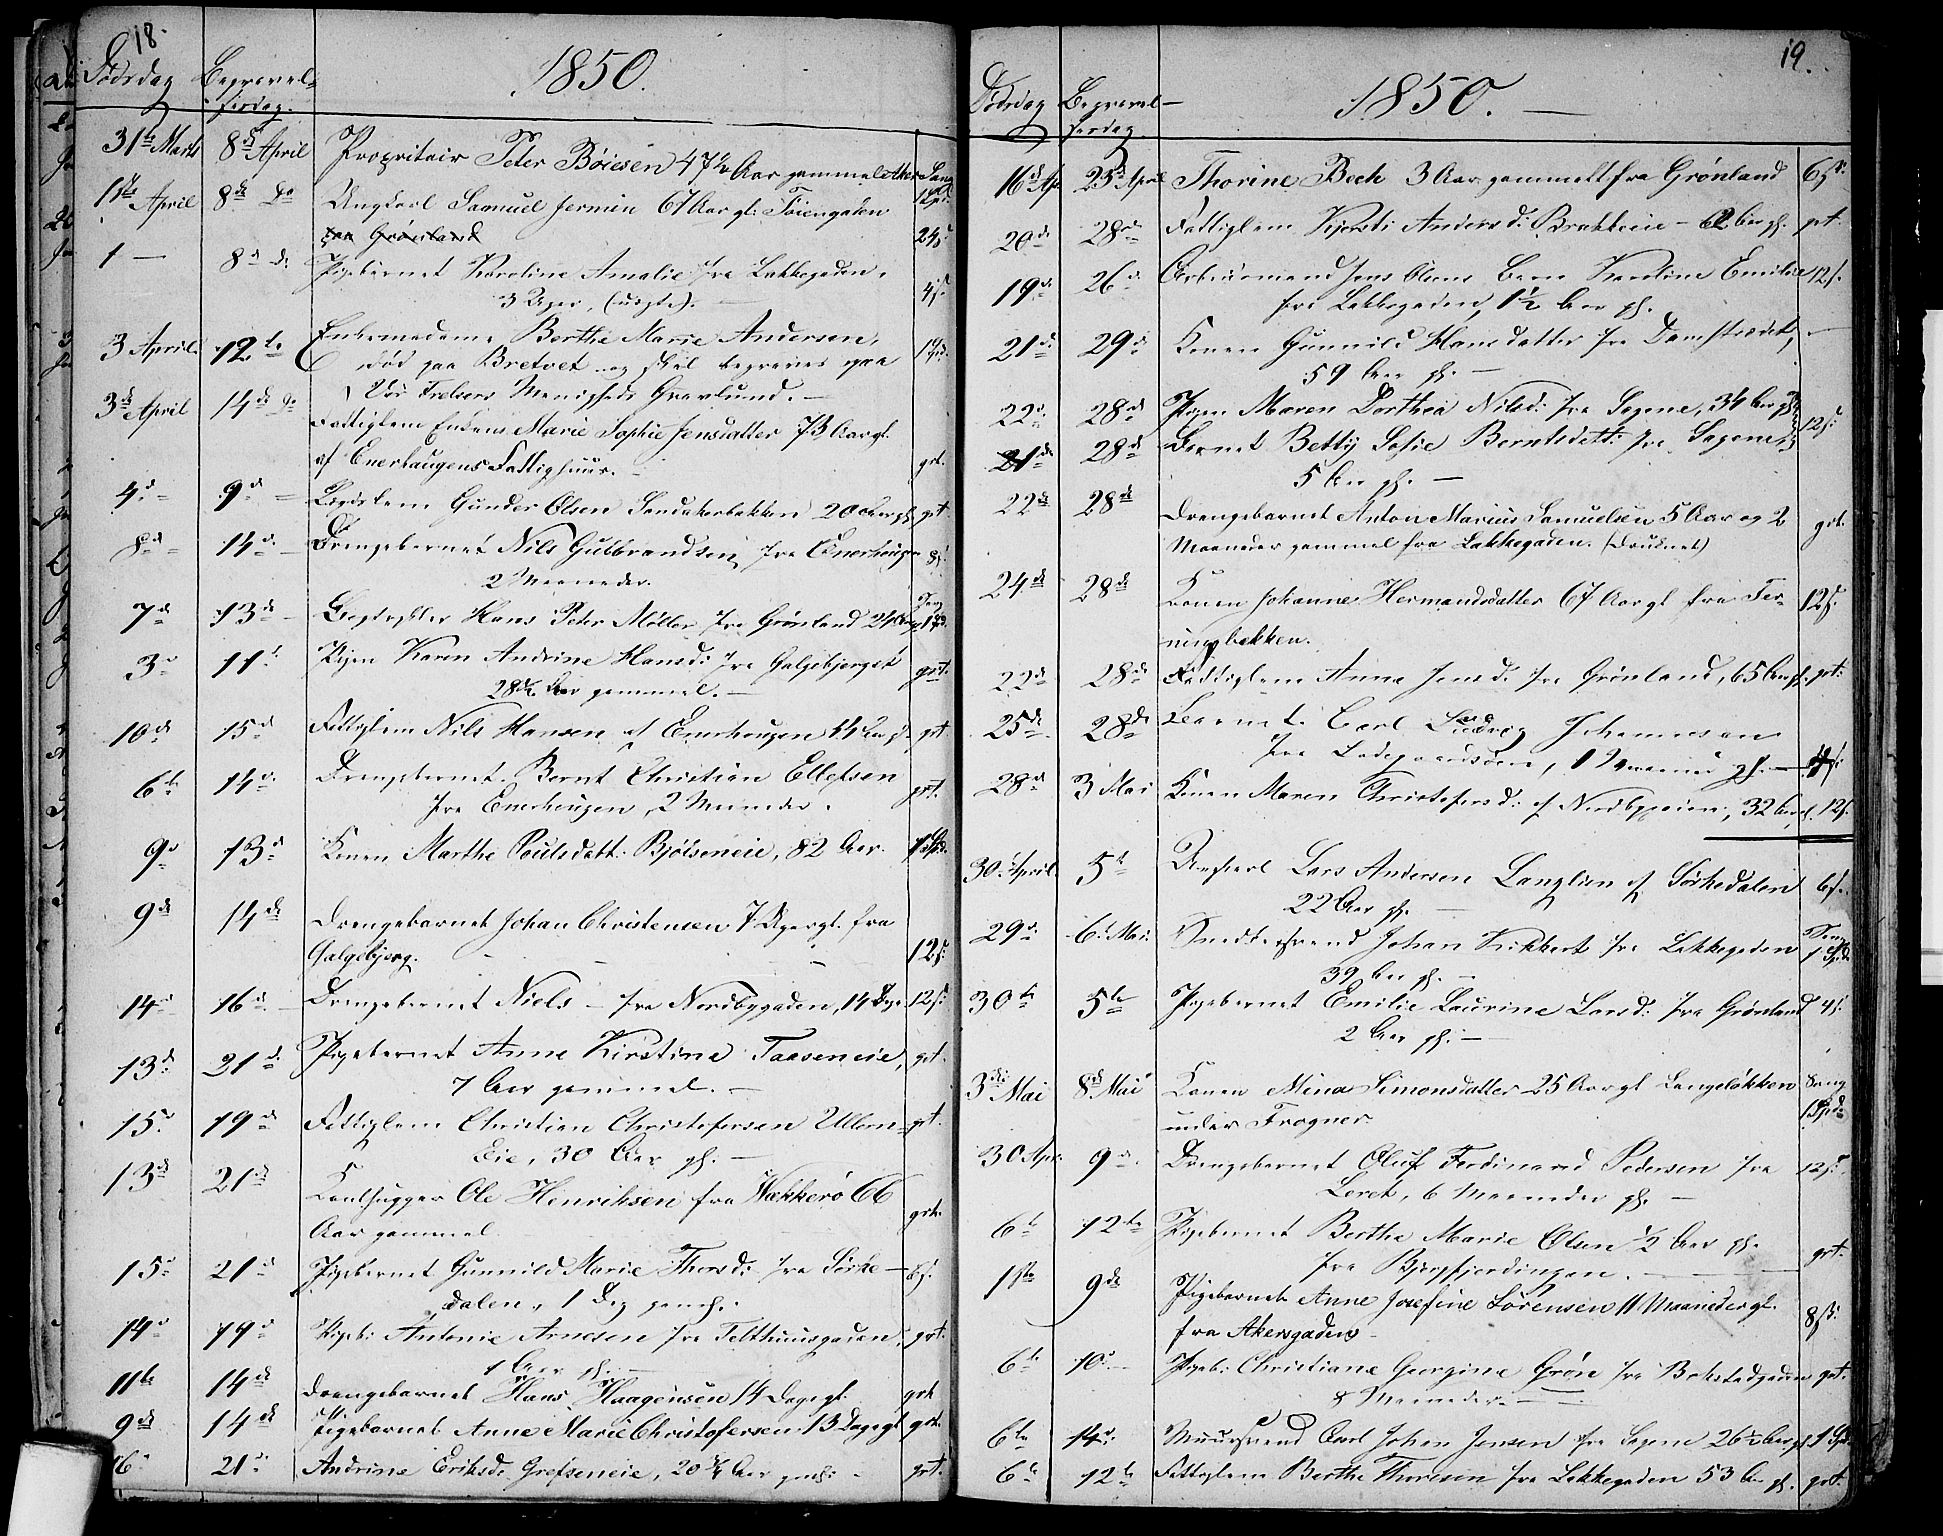 18.
Dødsdag Begravel-
sesdag.
1850.
31te Marts 8de April Propritair Peter Böiesen 47½ Aar gammel Aker Sang
1ste April 8de Do Ungkarl Samuel Jermin 67 Aar gl. Töiengaden 1 Spd.
fra Grönland 24 s:
1 — 8d d: Pigebarnet Karoline Amalie fra Lakkegaden,
3 Uger, (uægte). — 4 s:
3 April 12te Enkemadame Berthe Marie Andersen,
død paa Bretvet og skal begraves paa
Vor Frelsers Menigheds Gravlund. —
3de April 14de Do Fattiglem Enken Marie Sophie Jensdatter 73 Aar gl.
af Enerhaugens Fattighuus. grt.
4d — 9d — Lægdslem Gunder Olsen Sandakerbakken 20 Aar gl. grt
8de — 14d. — Drengebarnet Nils Gulbrandsen, fra Enerhaugen 8 s:
2 Maaneder.
7de 13de — Hans Peter Møller fra Grönland 24 Aar gl.
3d 11t. Pigen Karen Andrine Hansd: fra Galgebjerget grt.
28½ Aar gammel. —
10de 15d Fattiglem Nils Hansen af Enerhaugen 44 Aar gl. grt
6te 14d. Drengebarnet Bernt Christian Ellefsen
fra Enerhaugen, 2 Maaneder. grt.
9d 13d Konen Marthe Poulsdatt: Bjölseneie, 82 Aar. 1 Spd.
9de 14de Drengebarnet Johan Christensen 7 Uger gl. fra
Galgebjerg. 12 s:
14d 16d. — Drengebarnet Niels — fra Nordbygaden, 14 Dage 12 s:
13de 21de Pigebarnet Anne Kirstine Taaseneie, grt.
7 Aar gammel. —
15d 19de Fattiglem Christian Christofersen Ullern- grt.
Eie, 30 Aar gl. —
13de 21de Ole Henriksen fra Wækkerö 66
Aar gammel grt.
15d 21d Pigebarnet Gunnild Marie Thorsd: fra Sörke- 6 s.
dalen, 1 Dag gaml.
14d 19d Pigeb: Antonie Arnesen fra Telthuusgaden, grt.
1 Aar gl. —
11te 14de Drengebarnet Hans Haagensen 14 Dage gl. grt
9de 14de Pigebarnet Anne Marie Christofersen 13 Dage gl. grt.
16d 21d. Andrine Eriksd: Grefseneie, 20¾ Aar gaml: grt.
19.
Dødsdag Begravel-
sesdag.
1850. —
16de Ap. 23de April Thorine Bech 3 Aar gammelt fra Grönland 6 s:
20de 28de Fattiglem Kjersti Andersd: Brakkeie — 62 Aar gl. grt.
19d. 26d. Arbeidsmand Jens Olsens Barn Karoline Emilie 12 s.
fra Lakkegaden, 1½ Aar gl.
21d. 29d. Konen Gunnild Hansdatter fra Damstrædet, —
59 Aar gl. —
22d. 28de Pigen Maren Dorthea Nilsd: fra Sagene, 34 Aar gl.
21de 28de Barnet Betty Sofie Berntsdatt: fra Sagene, 12 s:
5 Aar gl. —
22de 28de Drengebarnet Anton Marius Samuelsen 5 Aar og 2
Maaneder gammel fra Lakkegaden. (Druknet) grt.
24de 28de Konen Johanne Hermandsdatter 67 Aar gl fra Fer-
ningbakken. 12 s.
22de 28de Fattiglem Anne Jensd: fra Grönland, 65 Aar gl. grt:
25de 28de Barnet Carl Ludvig Johannesen
fra Ladegaardsöen, 1 Maaned gl. —
28d 3 Mai Konen Maren Christofersd: af Nordbygaden, 32 Aar gl. 12 s.
30. April 5te Ungkarl Lars Andersen Langlien af Sörkedalen 6 s.
22 Aar gl. —
29d. 6. Mai Snedkersvend Johan Kikkert fra Lakkegaden Sang
39 Aar gl. — 1 Spd
30te 5te Pigebarnet Emilie Laurine Larsd: fra Grönland 4 s:
2 Aar gl. —
3de Mai 8de Mai Konen Mina Simonsdatter 25 Aar gl Langelökken Sang
under Frogner. 1 Spd
30 Apr: 9de Drengebarnet Oluf Ferdinand Pedersen fra 12 s:
Leret, 6 Maaneder gl. —
6te 12te Pigebarnet Berthe Marie Olsen ½ Aar gl.
fra Bjergfjerdingen. — grt:
1ste 9de Pigebarnet Anne Josefine Sörensen 11 Maaneder gl.
fra Akersgaden. 8 s:
6te 10d — Pigeb: Christiane Georgine Grön fra Bakstadgaden grt.
8 Maaneder. —
6te 14d. Muursvend Carl Johan Jensen fra Sagene 26½ Aar gl. 1 Spd
6te 12te Fattiglem Berthe Thoresen fra Lakkegaden 53 Aar gl. grt.